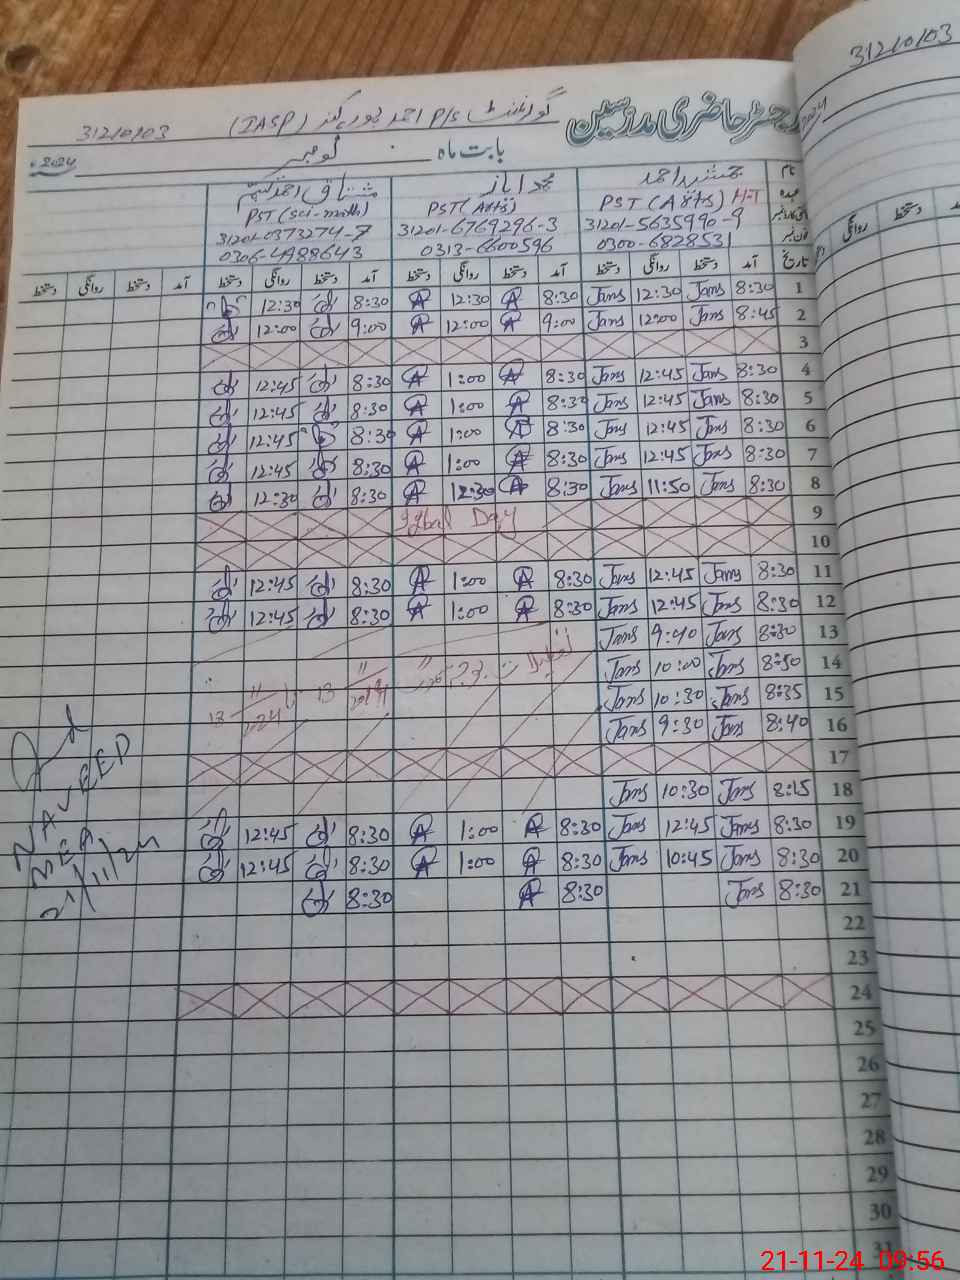 31210103
رجسٹر حاضری مدرسین
گورنمنٹ P/S احمد پور (IASP) 31210103
بابت ماہ نومبر 2024
نام جمشید احمد محمد ایاز مشتاق احمد
عہدہ PST (Arts) H-T PST (Arts) PST (Sci-math)
31201-5635990-9 31201-6769296-3 31201-0373274-7
فون نمبر 0300-6828531 0313-6600596 0306-4988643
تاریخ آمد دستخط روانگی دستخط آمد دستخط روانگی دستخط آمد دستخط روانگی دستخط آمد دستخط روانگی دستخط
1 8:30 Jams 12:30 Jams 8:30 A 12:30 A 8:30 12:30
2 8:45 Jams 12:00 Jams 9:00 A 12:00 A 9:00 12:00
3
4 8:30 Jams 12:45 Jams 8:30 A 1:00 A 8:30 12:45
5 8:30 Jams 12:45 Jams 8:30 A 1:00 A 8:30 12:45
6 8:30 Jams 12:45 Jams 8:30 A 1:00 A 8:30 12:45
7 8:30 Jams 12:45 Jams 8:30 A 1:00 A 8:30 12:45
8 8:30 Jams 11:50 Jams 8:30 A 12:30 A 8:30 12:30
9 Iqbal Day
10
11 8:30 Jams 12:45 Jams 8:30 A 1:00 A 8:30 12:45
12 8:30 Jams 12:45 Jams 8:30 A 1:00 A 8:30 12:45
13 8:30 Jams 9:40 Jams
14 8:50 Jams 10:00 Jams
15 8:35 Jams 10:30 Jams
16 8:40 Jams 9:30 Jams
17
18 8:15 Jams 10:30 Jams
19 8:30 Jams 12:45 Jams 8:30 A 1:00 A 8:30 12:45
20 8:30 Jams 10:45 Jams 8:30 A 1:00 A 8:30 12:45
21 8:30 Jams 8:30 A 8:30
22
23
24
25
26
27
28
29
30
31
NAVEED
MEA
21/11/24
21-11-24 09:56